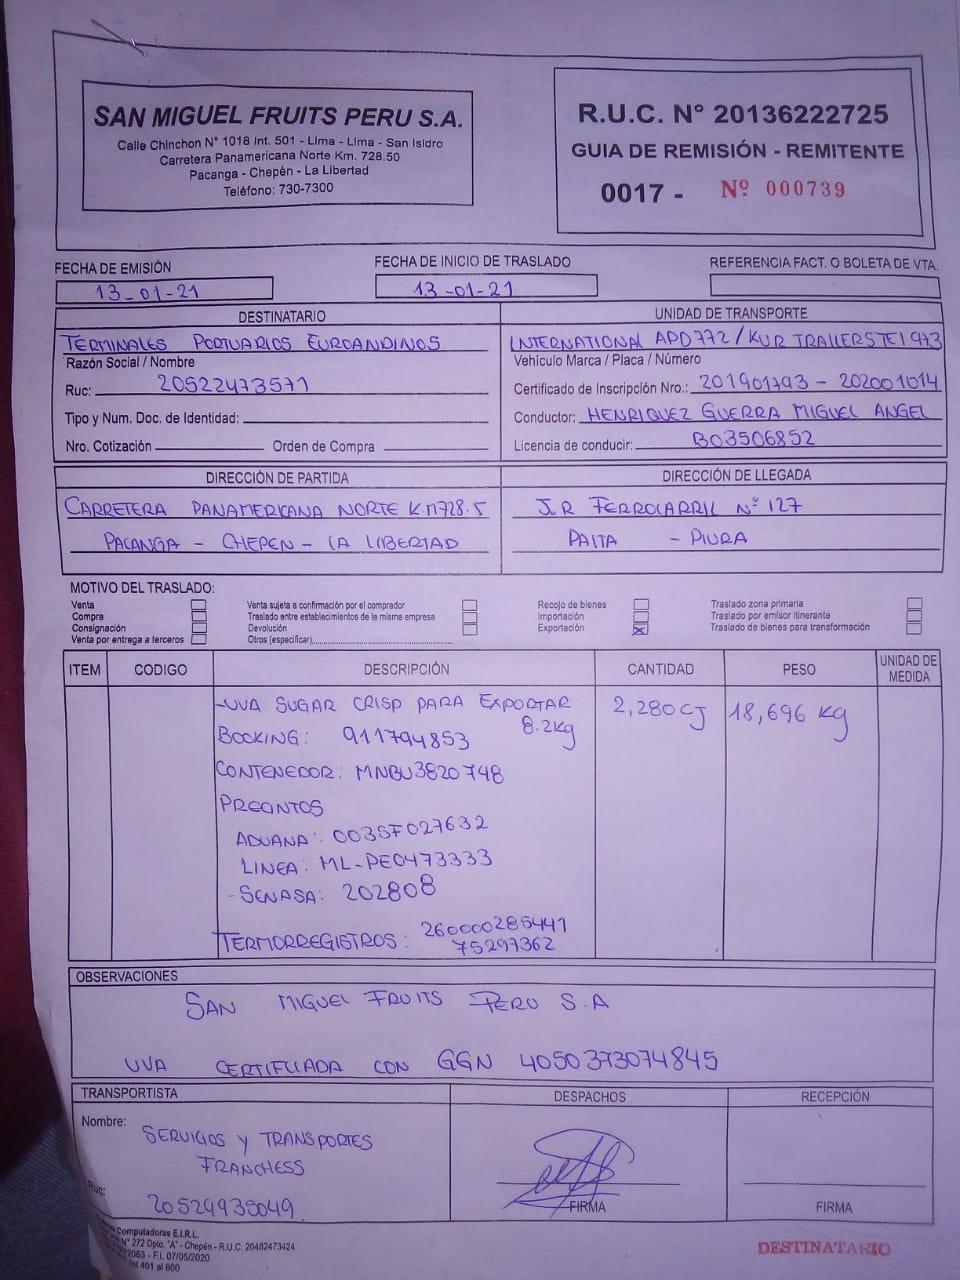 SAN MIGUEL FRUITS PERU S.A.
Calle Chinchon N° 1018 Int. 501 - Lima - Lima - San Isidro
Carretera Panamericana Norte Km. 728.50
Pacanga - Chepén - La Libertad
Teléfono: 730-7300
R.U.C. N° 20136222725
GUIA DE REMISIÓN - REMITENTE
0017 - Nº 000739
FECHA DE EMISIÓN
13-01-21
FECHA DE INICIO DE TRASLADO
13-01-21
REFERENCIA FACT. O BOLETA DE VTA.
DESTINATARIO
TERMINALES PORTUARIOS EUROANDINOS
Razón Social / Nombre
Ruc: 20522473571
Tipo y Num. Doc. de Identidad:
Nro. Cotización Orden de Compra
UNIDAD DE TRANSPORTE
INTERNATIONAL APD772 / KUR TRAILERS TE1973
Vehículo Marca / Placa / Número
Certificado de Inscripción Nro.: 201901793 - 202001014
Conductor: HENRIQUEZ GUERRA MIGUEL ANGEL
Licencia de conducir: B03506852
DIRECCIÓN DE PARTIDA
CARRETERA PANAMERICANA NORTE K.M728.5
PACANGA - CHEPEN - LA LIBERTAD
DIRECCIÓN DE LLEGADA
J.R FERROCARRIL Nº 127
PAITA - PIURA
MOTIVO DEL TRASLADO:
Venta
Compra
Consignación
Venta por entrega a terceros
Venta sujeta a confirmación por el comprador
Traslado entre establecimientos de la misma empresa
Devolución
Otros (especificar)
Recojo de bienes
Importación
Exportación X
Traslado zona primaria
Traslado por emisor itinerante
Traslado de bienes para transformación
ITEM CODIGO DESCRIPCIÓN CANTIDAD PESO UNIDAD DE MEDIDA
-UVA SUGAR CRISP PARA EXPORTAR 2,280CJ 18,696 kg
8.2kg
BOOKING: 911794853
CONTENEDOR: MNBU3820748
PRECINTOS
ADUANA: 0035F027632
LINEA: ML-PE0473333
-SENASA: 202808
TERMORREGISTROS: 260000285441
75297362
OBSERVACIONES
SAN MIGUEL FRUITS PERU S.A
UVA CERTIFICADA CON GGN 4050373074845
TRANSPORTISTA
Nombre:
SERVICIOS Y TRANSPORTES
FRANCHESS
Ruc:
20529935049
DESPACHOS
FIRMA
RECEPCIÓN
FIRMA
Computadoras E.I.R.L.
N° 272 Dpto. "A" - Chepén - R.U.C. 20482473424
2063 - F.I. 07/05/2020
401 al 800
DESTINATARIO